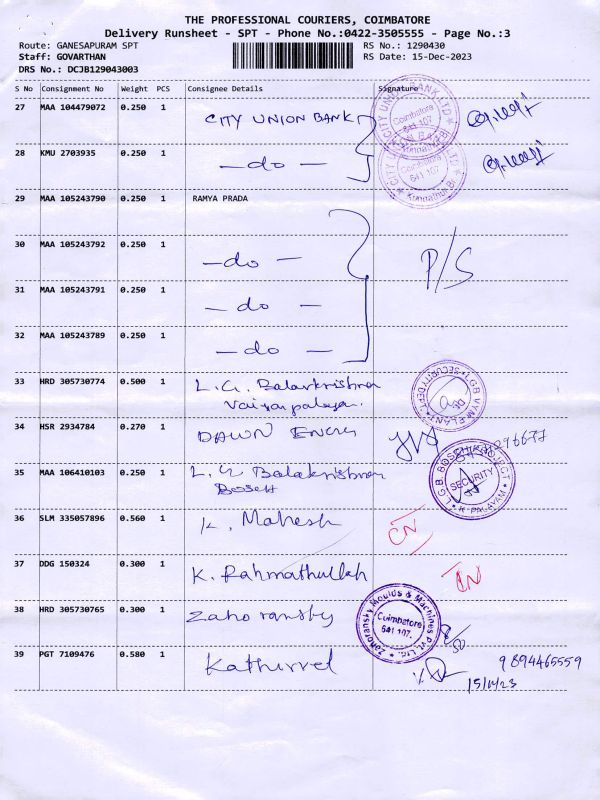 THE PROFESSIONAL COURIERS, COIMBATORE
Delivery Runsheet - SPT - Phone No.:0422-3505555 - Page No.:3
Route: GANESAPURAM SPT RS No.: 1290430
Staff: GOVARTHAN RS Date: 15-Dec-2023
DRS No.: DCJB129043003
S No Consignment No Weight PCS Consignee Details Signature
27 MAA 104479072 0.250 1 CITY UNION BANK
CITY UNION BANK LTD Coimbatore 641 107
28 KMU 2703935 0.250 1 — do —
CITY UNION BANK LTD Coimbatore 641 107
29 MAA 105243790 0.250 1 RAMYA PRADA
30 MAA 105243792 0.250 1 — do — P/S
31 MAA 105243791 0.250 1 — do —
32 MAA 105243789 0.250 1 — do —
33 HRD 305730774 0.500 1 L.G. Balakrishna
Vaiyapalayam.
L.G.B. SECURITY DEPT.
34 HSR 2934784 0.270 1 DAWN
35 MAA 106410103 0.250 1 L.G Balakrishna
Bosch
L.G.B. BOSCH PROJECT SECURITY K. PALAYAM
36 SLM 335057896 0.560 1 K. Mahesh CN
37 DDG 150324 0.300 1 K. Rahmathullah IN
38 HRD 305730765 0.300 1 Zahoransky
Zahoransky Moulds & Machines Pvt. Ltd. Coimbatore 641 107.
39 PGT 7109476 0.580 1 Kathirvel 9894465559